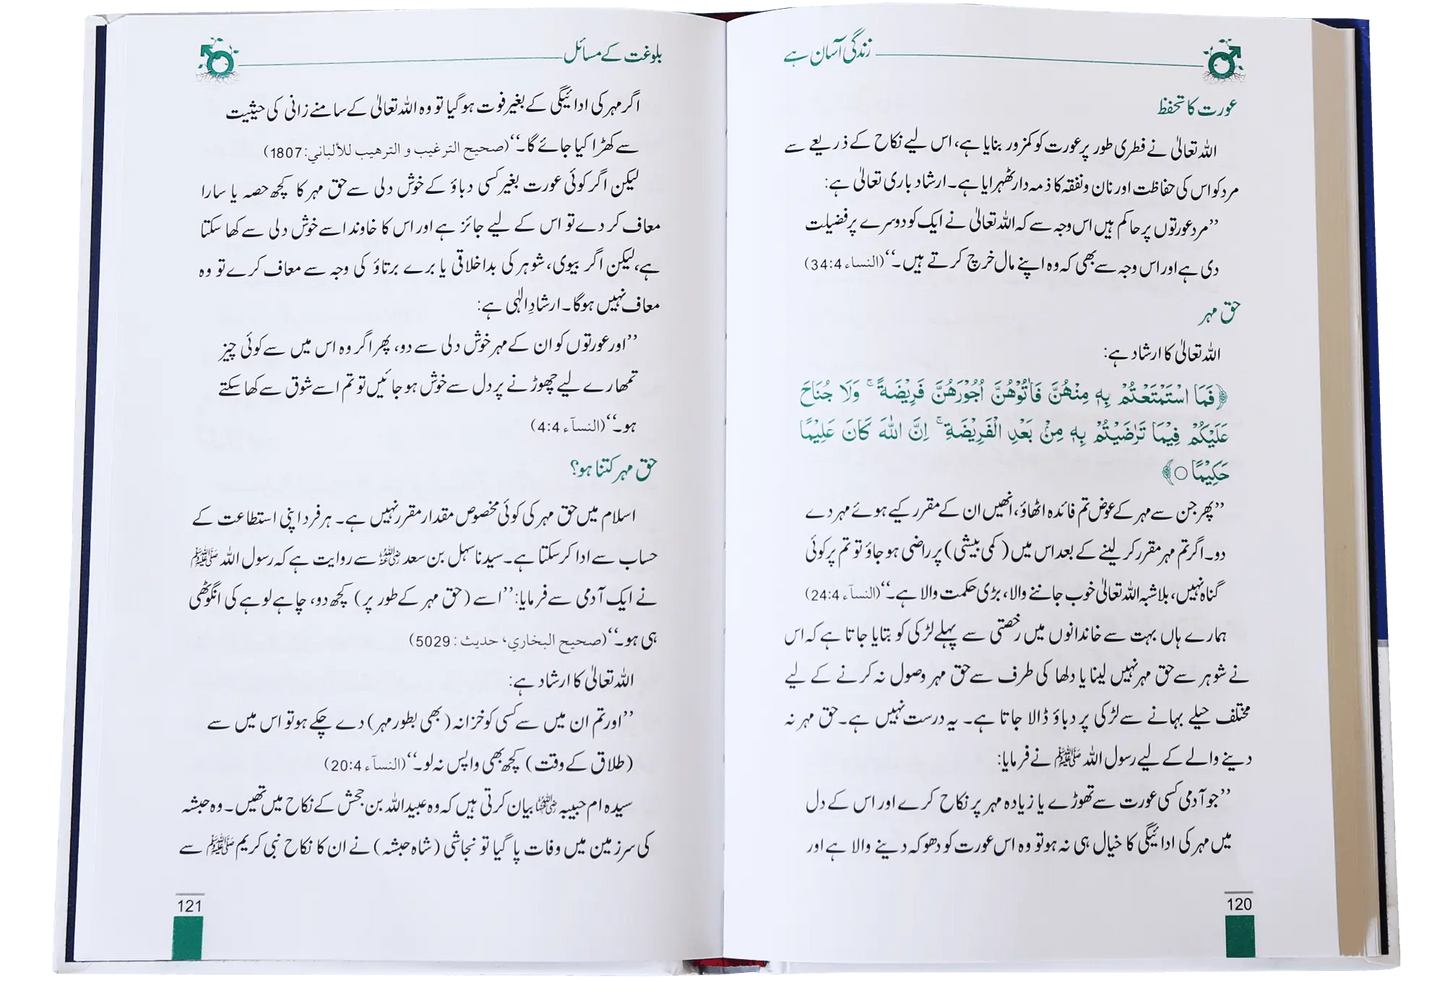 زندگی آسان ہے
عورت کا تحفظ
اللہ تعالیٰ نے فطری طور پر عورت کو کمزور بنایا ہے، اس لیے نکاح کے ذریعے سے
مرد کو اس کی حفاظت اور نان ونفقہ کا ذمہ دار ٹھہرایا ہے۔ ارشاد باری تعالیٰ ہے:
’’مرد عورتوں پر حاکم ہیں اس وجہ سے کہ اللہ تعالیٰ نے ایک کو دوسرے پر فضیلت
دی ہے اور اس وجہ سے بھی کہ وہ اپنے مال خرچ کرتے ہیں۔‘‘ (النساء 34:4)
حق مہر
اللہ تعالیٰ کا ارشاد ہے:
﴿فَمَا اسْتَمْتَعْتُمْ بِهٖ مِنْهُنَّ فَاٰتُوْهُنَّ اُجُوْرَهُنَّ فَرِيْضَةً ۚ وَلَا جُنَاحَ
عَلَيْكُمْ فِيْمَا تَرٰضَيْتُمْ بِهٖ مِنْۢ بَعْدِ الْفَرِيْضَةِ ۚ اِنَّ اللّٰهَ كَانَ عَلِيْمًا
حَكِيْمًا ○﴾
’’پھر جن سے مہر کے عوض تم فائدہ اٹھاؤ، انھیں ان کے مقرر کیے ہوئے مہر دے
دو۔ اگر تم مہر مقرر کر لینے کے بعد اس میں (کمی بیشی) پر راضی ہو جاؤ تو تم پر کوئی
گناہ نہیں، بلاشبہ اللہ تعالیٰ خوب جاننے والا، بڑی حکمت والا ہے۔‘‘ (النسآء 24:4)
ہمارے ہاں بہت سے خاندانوں میں رخصتی سے پہلے لڑکی کو بتایا جاتا ہے کہ اس
نے شوہر سے حق مہر نہیں لینا یا دلھا کی طرف سے حق مہر وصول نہ کرنے کے لیے
مختلف حیلے بہانے سے لڑکی پر دباؤ ڈالا جاتا ہے۔ یہ درست نہیں ہے۔ حق مہر نہ
دینے والے کے لیے رسول اللہ ﷺ نے فرمایا:
’’جو آدمی کسی عورت سے تھوڑے یا زیادہ مہر پر نکاح کرے اور اس کے دل
میں مہر کی ادائیگی کا خیال ہی نہ ہو تو وہ اس عورت کو دھوکہ دینے والا ہے اور
120
بلوغت کے مسائل
اگر مہر کی ادائیگی کے بغیر فوت ہو گیا تو وہ اللہ تعالیٰ کے سامنے زانی کی حیثیت
سے کھڑا کیا جائے گا۔‘‘ (صحيح الترغيب و الترهيب للألباني: 1807)
لیکن اگر کوئی عورت بغیر کسی دباؤ کے خوش دلی سے حق مہر کا کچھ حصہ یا سارا
معاف کر دے تو اس کے لیے جائز ہے اور اس کا خاوند اسے خوش دلی سے کھا سکتا
ہے، لیکن اگر بیوی، شوہر کی بداخلاقی یا برے برتاؤ کی وجہ سے معاف کرے تو وہ
معاف نہیں ہوگا۔ ارشادِ الٰہی ہے:
’’اور عورتوں کو ان کے مہر خوش دلی سے دو، پھر اگر وہ اس میں سے کوئی چیز
تمھارے لیے چھوڑنے پر دل سے خوش ہو جائیں تو تم اسے شوق سے کھا سکتے
ہو۔‘‘ (النسآء 4:4)
حق مہر کتنا ہو؟
اسلام میں حق مہر کی کوئی مخصوص مقدار مقرر نہیں ہے۔ ہر فرد اپنی استطاعت کے
حساب سے ادا کر سکتا ہے۔ سیدنا سہل بن سعد رضی اللہ عنہ سے روایت ہے کہ رسول اللہ ﷺ
نے ایک آدمی سے فرمایا: ’’اسے (حق مہر کے طور پر) کچھ دو، چاہے لوہے کی انگوٹھی
ہی ہو۔‘‘ (صحيح البخاري، حديث: 5029)
اللہ تعالیٰ کا ارشاد ہے:
’’اور تم ان میں سے کسی کو خزانہ (بھی بطور مہر) دے چکے ہو تو اس میں سے
(طلاق کے وقت) کچھ بھی واپس نہ لو۔‘‘ (النسآء 20:4)
سیدہ ام حبیبہ رضی اللہ عنہا بیان کرتی ہیں کہ وہ عبید اللہ بن جحش کے نکاح میں تھیں۔ وہ حبشہ
کی سرزمین میں وفات پا گیا تو نجاشی (شاہ حبشہ) نے ان کا نکاح نبی کریم ﷺ سے
121